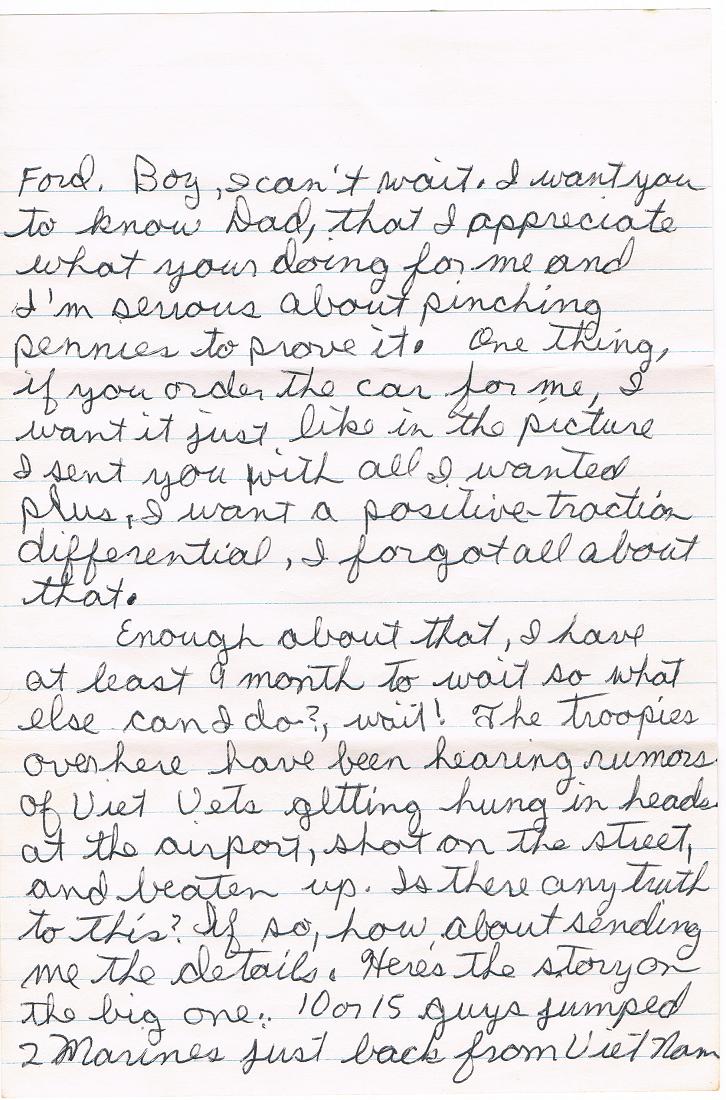 Ford. Boy, I can't wait. I want you
to know Dad, that I appreciate
what your doing for me and
I'm serious about pinching
pennies to prove it. One thing,
if you order the car for me, I
want it just like in the picture
I sent you with all I wanted
plus, I want a positive-traction
differential, I forgot all about
that.
Enough about that, I have
at least 9 month to wait so what
else can I do?, wait! The troopies
over here have been hearing rumors
of Viet Vets getting hung in heads
at the airport, shot on the street,
and beaten up. Is there any truth
to this? If so, how about sending
me the details. Here's the story on
the big one:. 10 or 15 guys jumped
2 Marines just back from Viet Nam